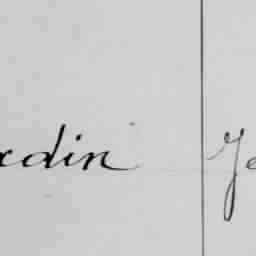 rdin Je